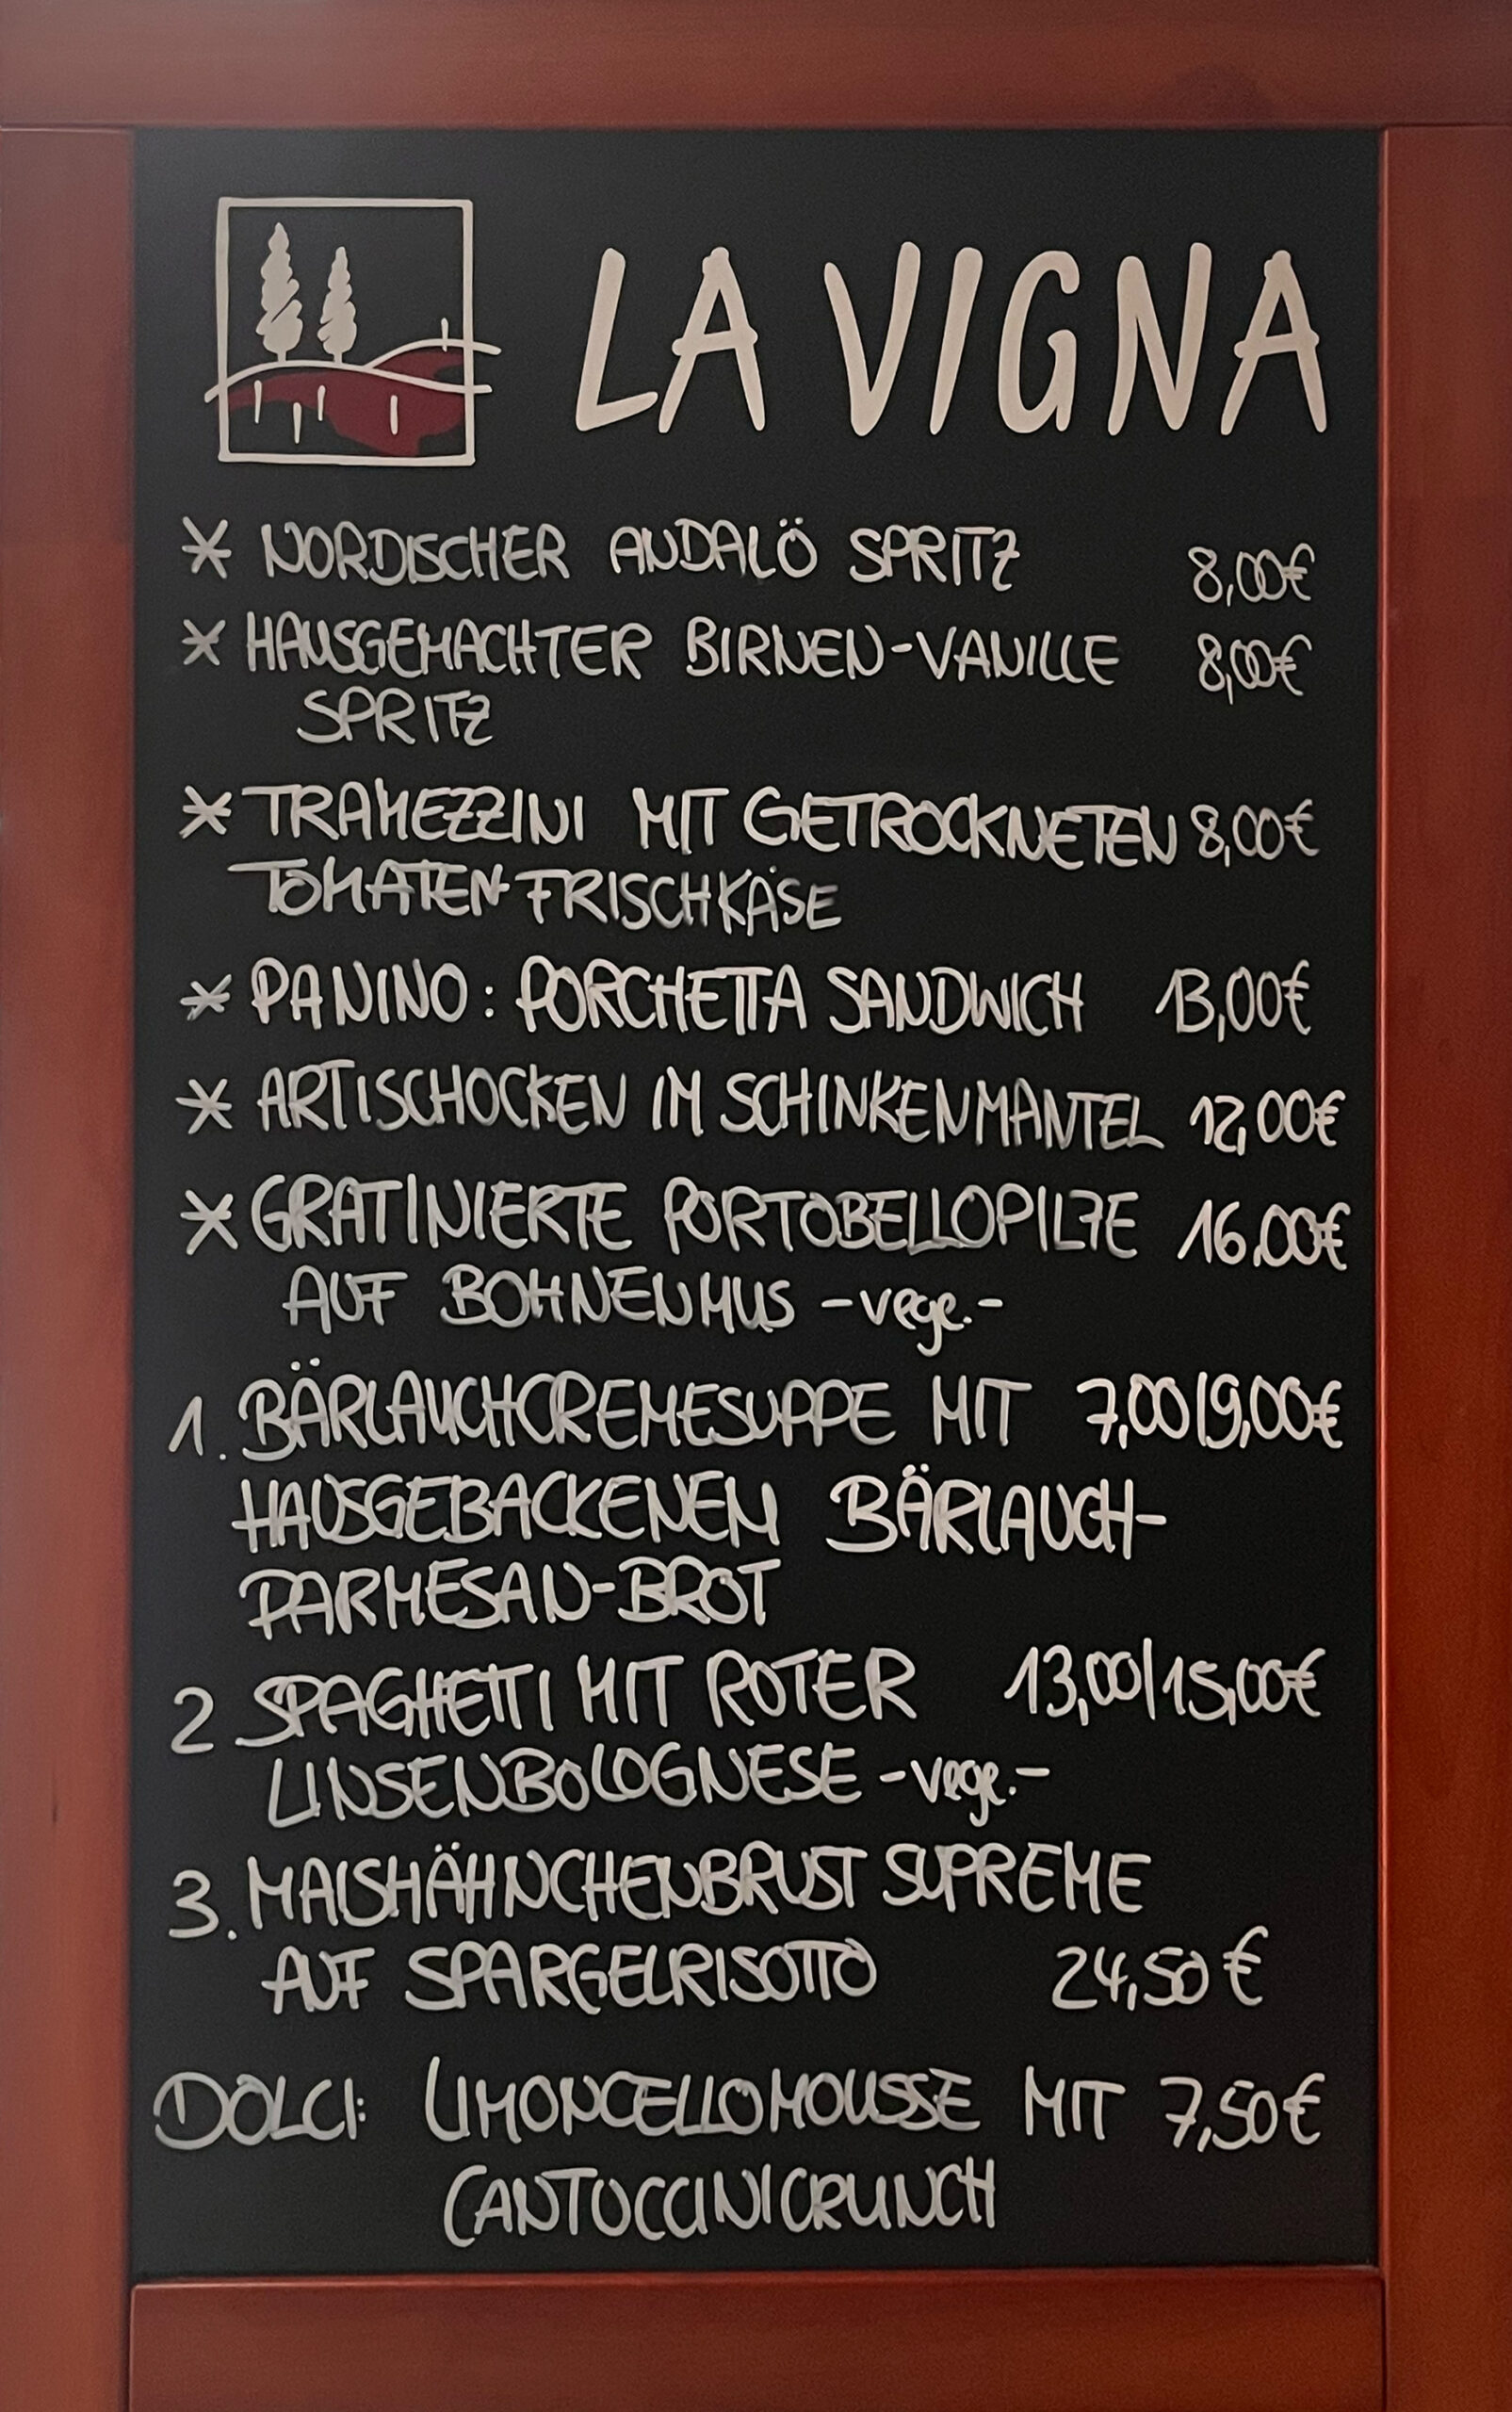 LA VIGNA
* NORDISCHER ANDALÖ SPRITZ 8,00€
* HAUSGEMACHTER BIRNEN-VANILLE 8,00€
SPRITZ
* TRAMEZZINI MIT GETROCKNETEN 8,00€
TOMATEN FRISCHKÄSE
* PANINO: PORCHETTA SANDWICH 13,00€
* ARTISCHOCKEN IM SCHINKENMANTEL 12,00€
* GRATINIERTE PORTOBELLOPILZE 16.00€
AUF BOHNENMUS -vege.-
1. BÄRLAUCHCREMESUPPE MIT 7,00|9,00€
HAUSGEBACKENEM BÄRLAUCH-
PARMESAN-BROT
2 SPAGHETTI MIT ROTER 13,00|15,00€
LINSENBOLOGNESE -vege.-
3. MAISHÄHNCHENBRUST SUPREME
AUF SPARGELRISOTTO 24,50€
DOLCI: LIMONCELLOMOUSSE MIT 7,50€
CANTUCCINICRUNCH